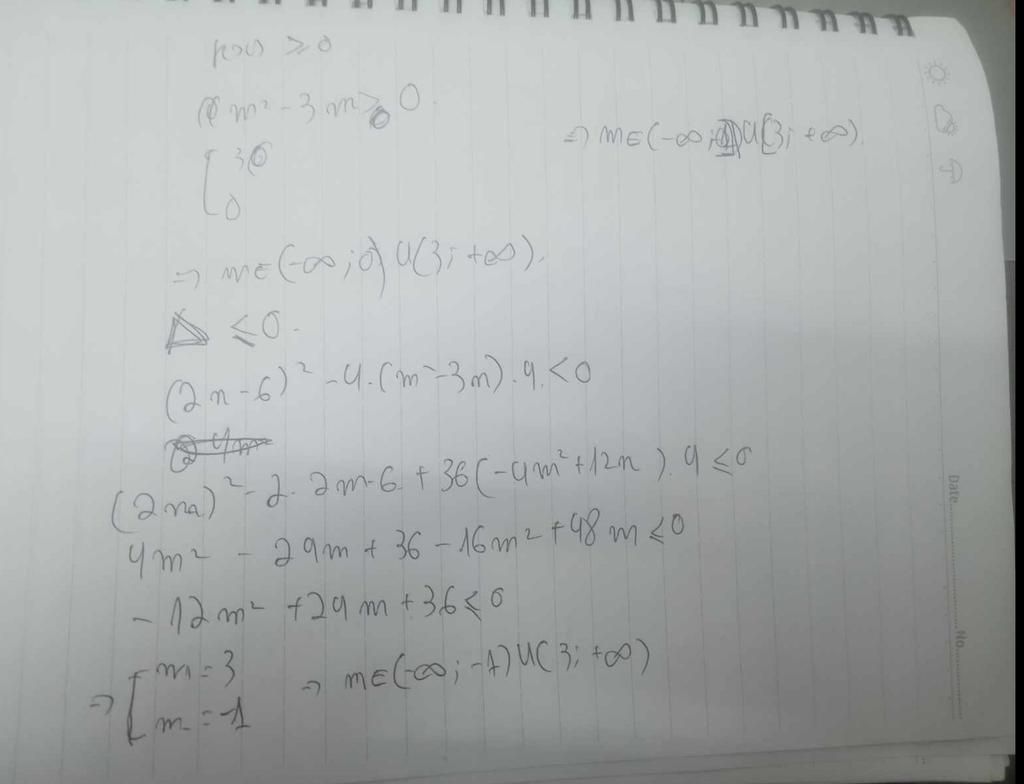 f(x) ≥ 0
m² - 3m > 0
[ 3
0
⇒ m∈(-∞; 0) ∪ (3; +∞).
⇒ m∈(-∞; ) ∪ [3; +∞).
Δ ≤ 0.
(2m - 6)² - 4.(m² - 3m).4 < 0
(2m)² - 2. 2m.6 + 36(-4m² + 12m).4 ≤ 0
4m² - 24m + 36 - 16m² + 48m ≤ 0
- 12m² + 24m + 36 ≤ 0
⇒ [ m = 3
m = -1
⇒ m∈(-∞; -1) ∪ (3; +∞)
Date
No.